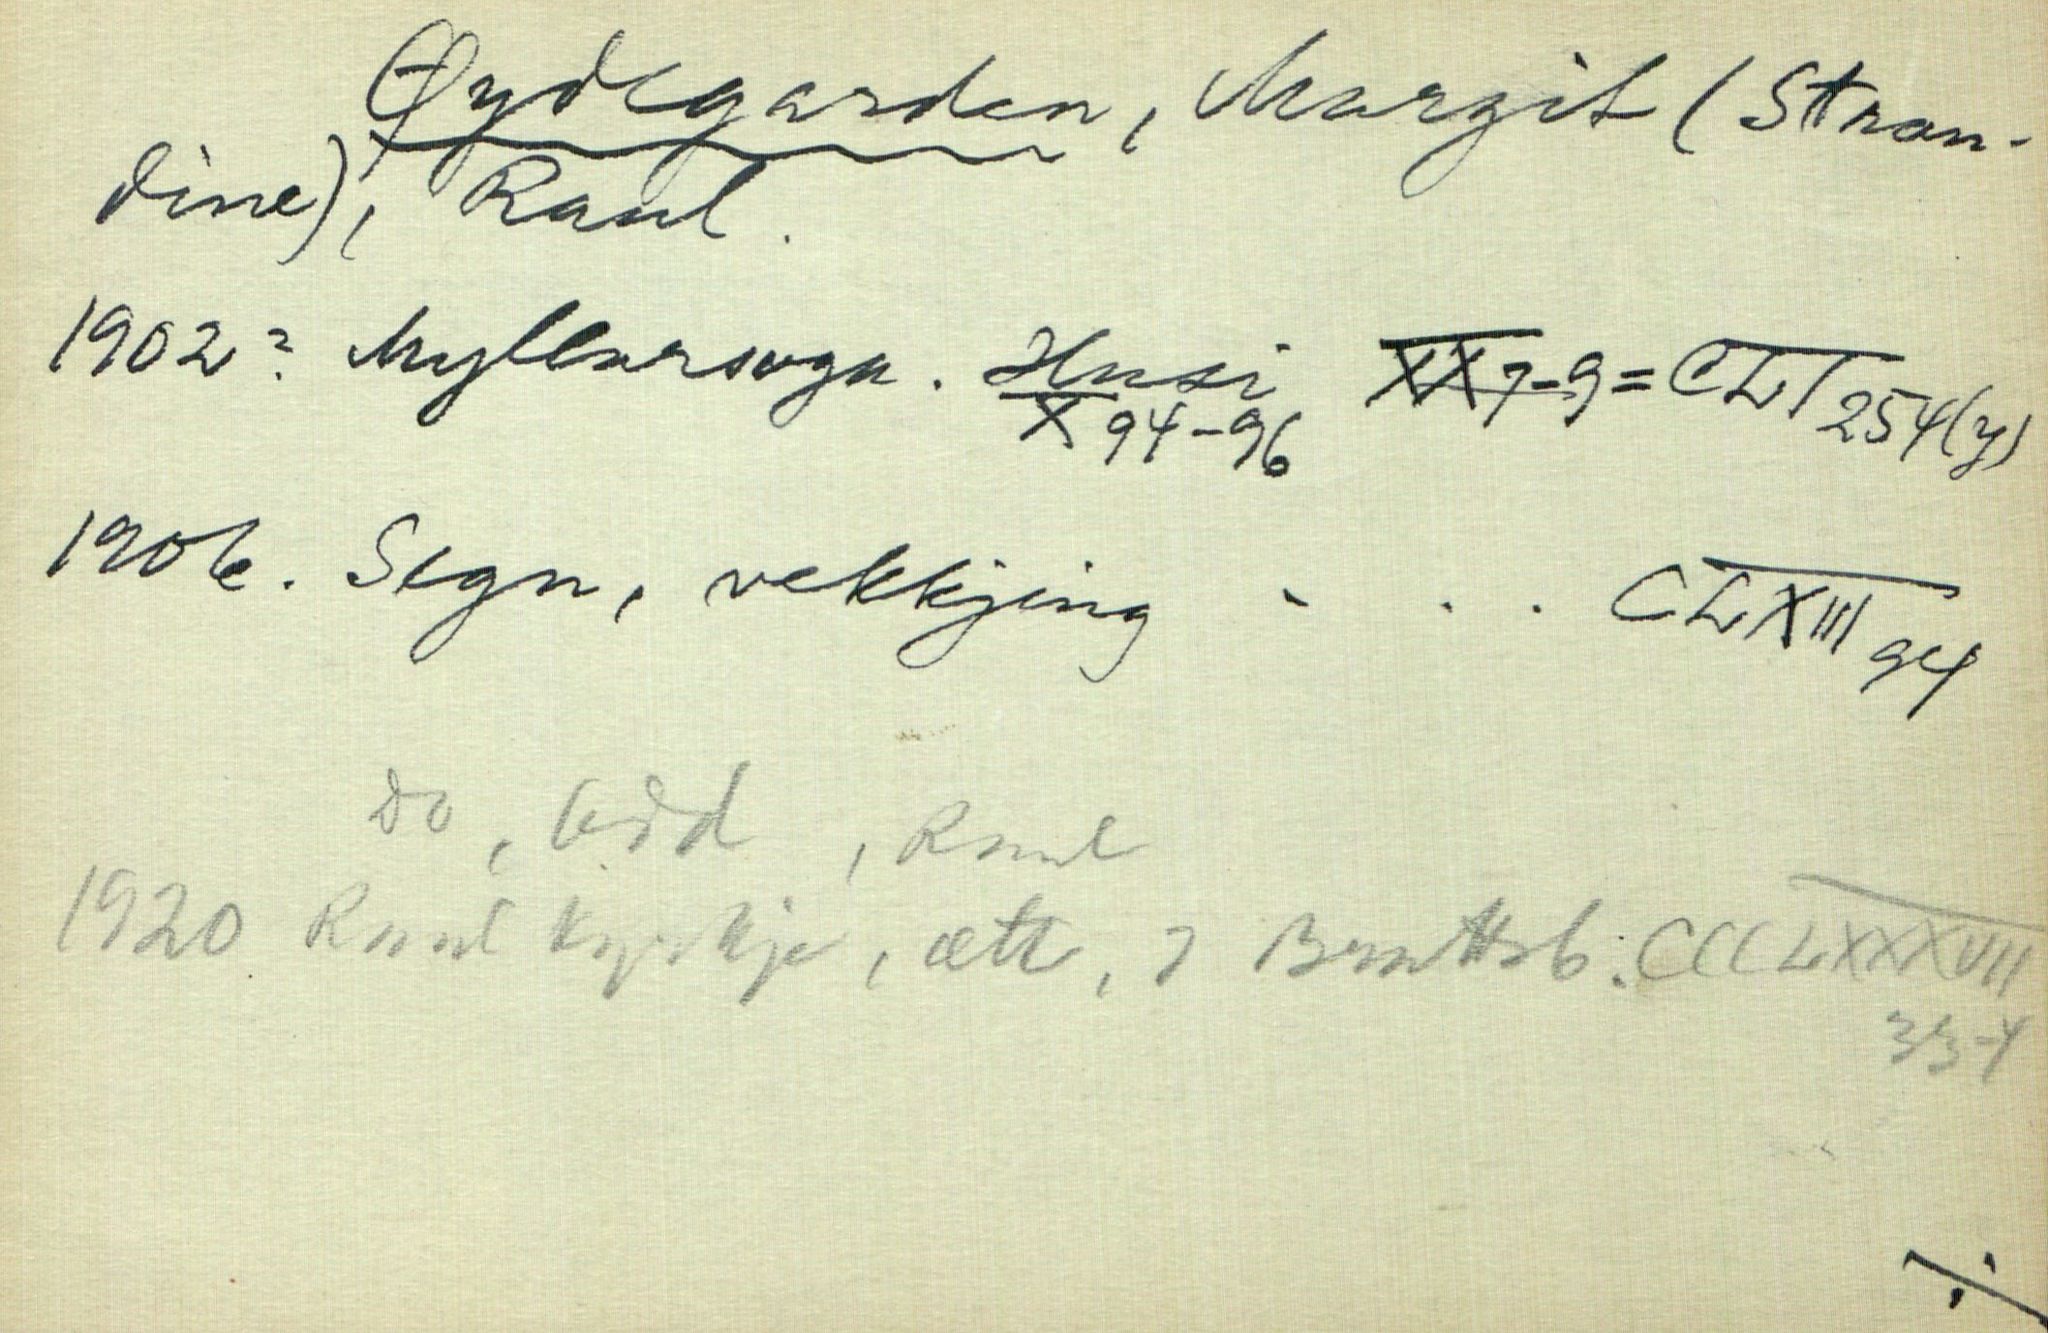 Øydegarden, Margit (Stran-
dine), Raul.
1902? Myllarsoga. Husi XX 7-9 = CLI 254(y)
X 94-96
1906. Segn, vekkjing - . . CLXIII 94
Do, Odd, Raul
1920 Raul kyrkje, ætt, 7 Brattsb. CCCLXXXVII
33-4